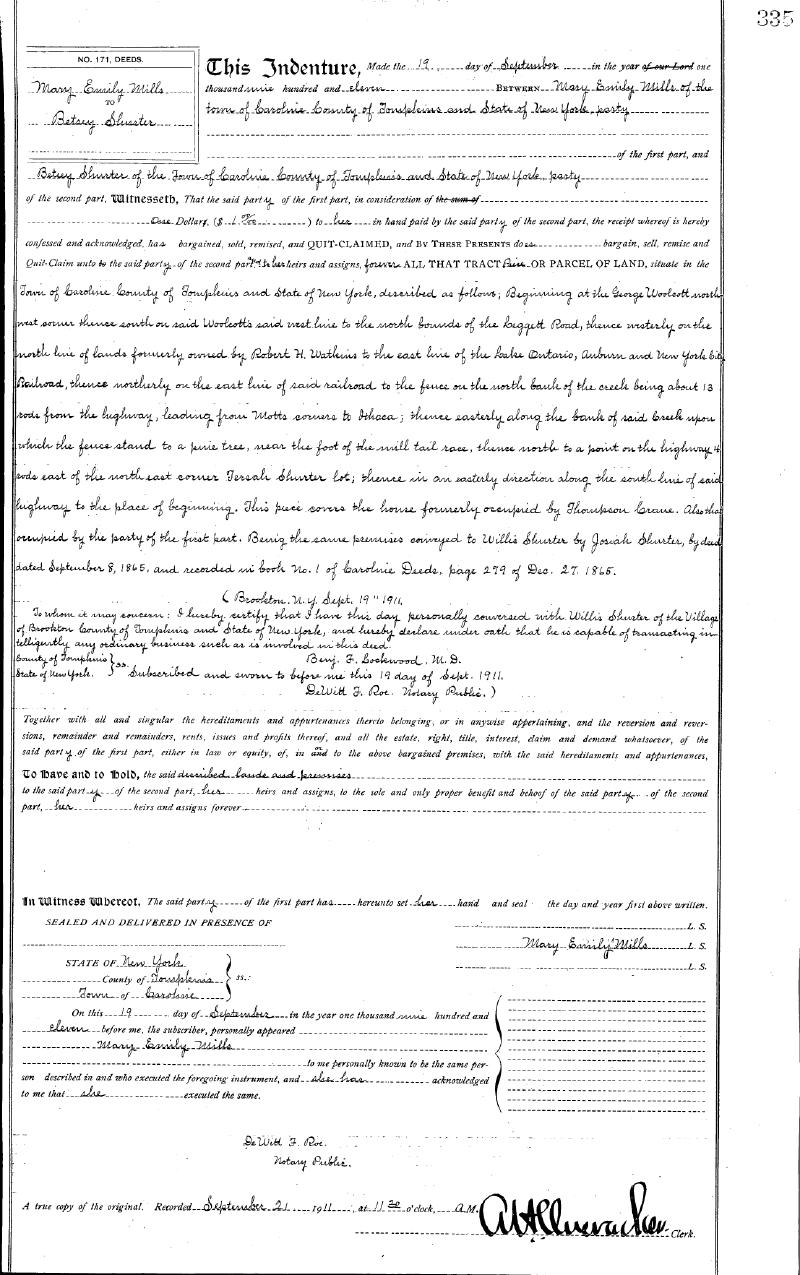 335
NO. 171, DEEDS.
Mary Emily Mills
TO
Betsey Shurter
This Indenture, Made the 19 day of September in the year of our Lord one
thousand nine hundred and eleven BETWEEN Mary Emily Mills of the
town of Caroline County of Tompkins and State of New York party
of the first part, and
Betsey Shurter of the Town of Caroline County of Tompkins and State of New York party
of the second part, Witnesseth, That the said party of the first part, in consideration of the sum of
One Dollars, ($ 1 ) to her in hand paid by the said party of the second part, the receipt whereof is hereby
confessed and acknowledged, has bargained, sold, remised, and QUIT-CLAIMED, and BY THESE PRESENTS does bargain, sell, remise and
Quit-Claim unto to the said party of the second part to her heirs and assigns, forever ALL THAT TRACT OR PARCEL OF LAND, situate in the
Town of Caroline County of Tompkins and State of New York, described as follows; Beginning at the George Woolcott north
west corner thence south on said Woolcott's said west line to the north bounds of the Leggett Road, thence westerly on the
north line of lands formerly owned by Robert H. Watkins to the east line of the Lake Ontario, Auburn and New York City
Railroad, thence northerly on the east line of said railroad to the fence on the north bank of the creek being about 13
rods from the highway, leading from Motts corners to Ithaca; thence easterly along the bank of said Creek upon
which the fence stand to a pine tree, near the foot of the mill tail race, thence north to a point on the highway 4
rods east of the north east corner Tersah Shurter lot; thence in an easterly direction along the south line of said
highway to the place of beginning. This piece covers the house formerly occupied by Thompson Crane. Also that
occupied by the party of the first part. Being the same premises conveyed to Willis Shurter by Josiah Shurter, by deed
dated September 8, 1865, and recorded in book No. 1 of Caroline Deeds, page 279 of Dec. 27. 1865.
( Brookton. N.Y. Sept. 19" 1911.
To whom it may concern: I hereby certify that I have this day personally conversed with Willis Shurter of the Village
of Brookton County of Tompkins and State of New York, and hereby declare under oath that he is capable of transacting in-
telligently any ordinary business such as is involved in this deed.
Benj. F. Lockwood, M.D.
County of Tompkins } ss.
State of New York. Subscribed and sworn to before me this 19 day of Sept. 1911.
DeWitt F. Roe. Notary Public. )
Together with all and singular the hereditaments and appurtenances thereto belonging, or in anywise appertaining, and the reversion and rever-
sions, remainder and remainders, rents, issues and profits thereof, and all the estate, right, title, interest, claim and demand whatsoever, of the
said party of the first part, either in law or equity, of, in and to the above bargained premises, with the said hereditaments and appurtenances,
To Have and to Hold, the said described lands and premises
to the said party of the second part, her heirs and assigns, to the sole and only proper benefit and behoof of the said party of the second
part, her heirs and assigns forever
In Witness Whereof, The said party of the first part has hereunto set her hand and seal the day and year first above written.
SEALED AND DELIVERED IN PRESENCE OF
L. S.
Mary Emily Mills L. S.
L. S.
STATE OF New York
County of Tompkins } ss.:
Town of Caroline
On this 19 day of September in the year one thousand nine hundred and
eleven before me, the subscriber, personally appeared
Mary Emily Mills
to me personally known to be the same per-
son described in and who executed the foregoing instrument, and she has acknowledged
to me that she executed the same.
DeWitt F. Roe.
Notary Public.
A true copy of the original. Recorded September 21 1911, at 11 30 o'clock, A.M.
Clerk.